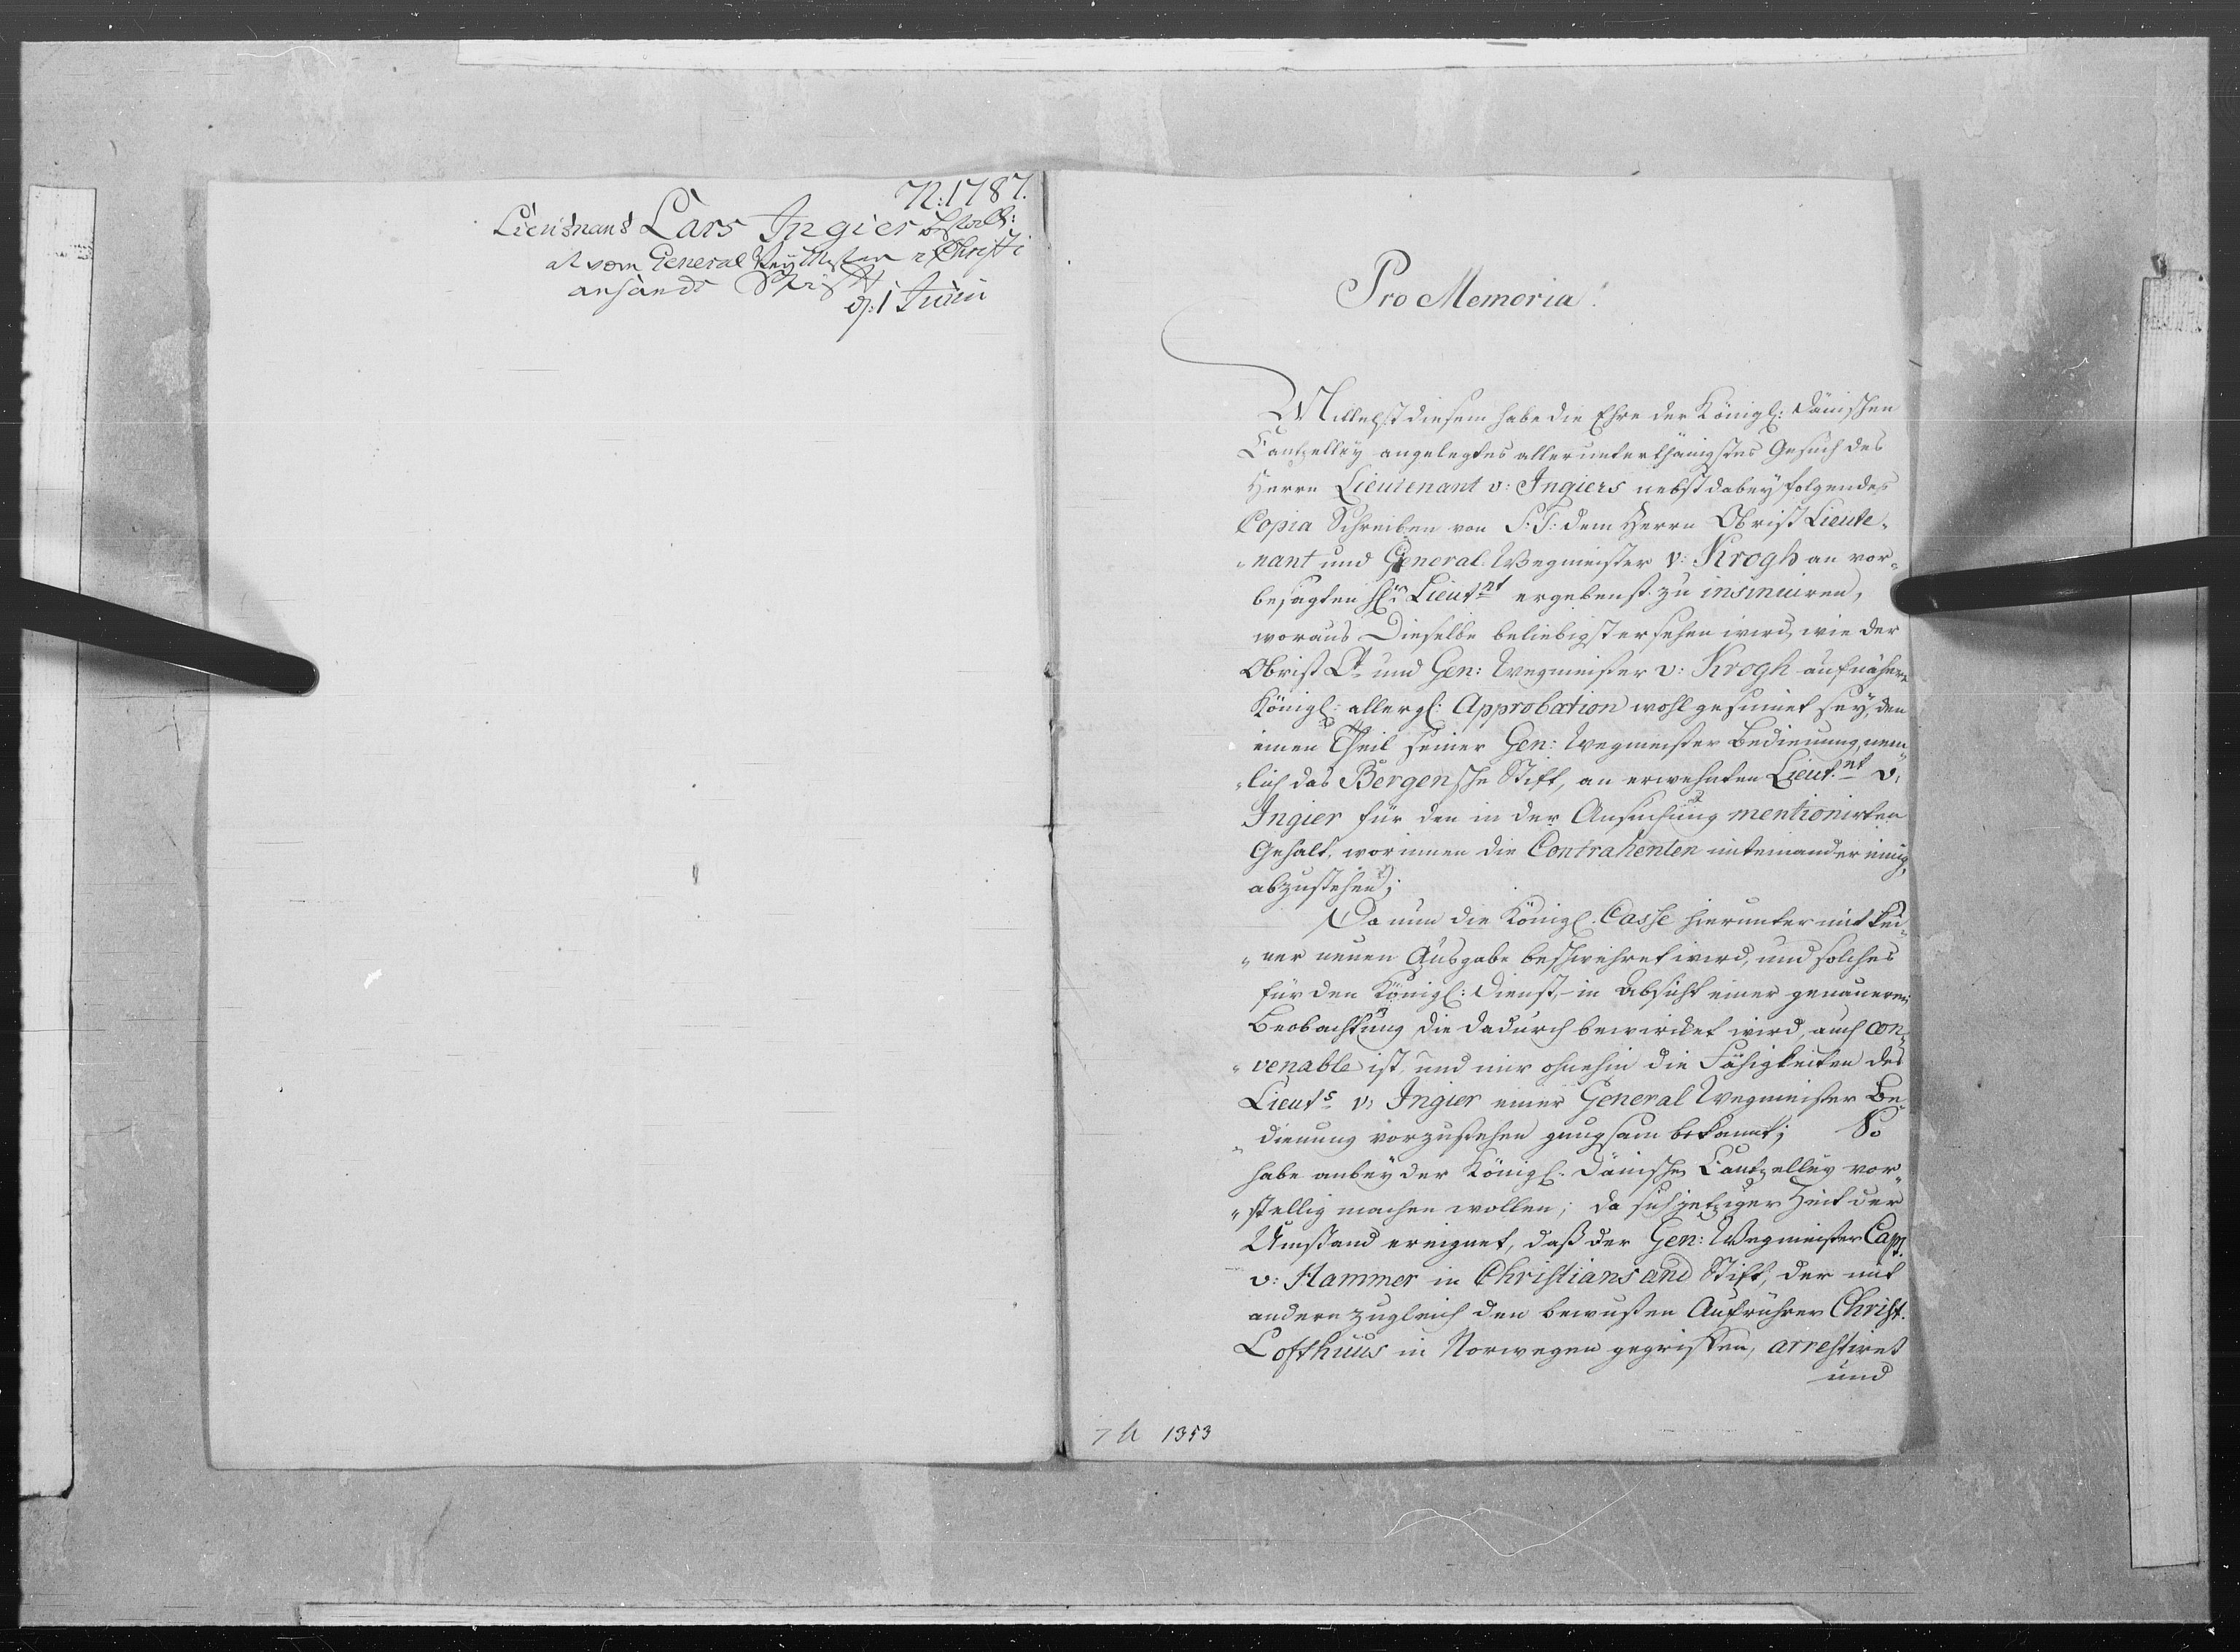 N: 1787.
Lieutnant Lars Ingier Bestall:
at være General Veÿ Mester i Christi
ansands Stift
d: 1 Junii
Pro Memoria.
Mittelst diesem habe die Ehre der Königl: Dänischen
Cantzelley angelegtes allerunterthänigstes Gesuch des
Herrn Lieutenant v: Ingiers nebst dabey folgendes
Copia Schreiben von S: T: dem Herrn Obrist Lieute-
-nant und General-Wegmeister v: Krogh an vor-
besagten Hr: Lieutnt ergebenst zu insinuiren,
woraus Dieselbe beliebigst ersehen wird, wie der
Obrist Lt und Gen: Wegmeister v: Krogh auf nähere
Königl: allergl: Approbation wohl gesinnet sey, den
einen Theil seiner Gen: Wegmeister Bedienung, nem-
-lich das Bergensche Stift, an erwehnten Lieut:nt v:
Ingier für den in der Ansuchung mentionirten
Gehalt, worinnen die Contrahenten miteinander einig,
abzustehen;
Da nun die Königl: Casse hierunter mit kei-
-ner neuen Ausgabe beschwehret wird, und solches
für den Königl: Dienst, in Absicht einer genaueren
Beobachtung die dadurch bewircket wird, auch con-
-venable ist, und mir ohnehin die Fähigkeiten des
Lieuts v: Ingier einer General Wegmeister Be-
-dienung vorzustehen gnugsam bekannt; So
habe anbey der Königl: Dänischen Cantzelley vor-
-stellig machen wollen; da sich jetziger Zeit der
Umstand ereignet, daß der Gen: Wegmeister Capt.
v: Hammer in Christiansand Stift, der mit
andern zugleich den bewusten Aufrührer Christ.
Lofthuus in Norwegen gegriffen, arrestiret
und
7 A 1353